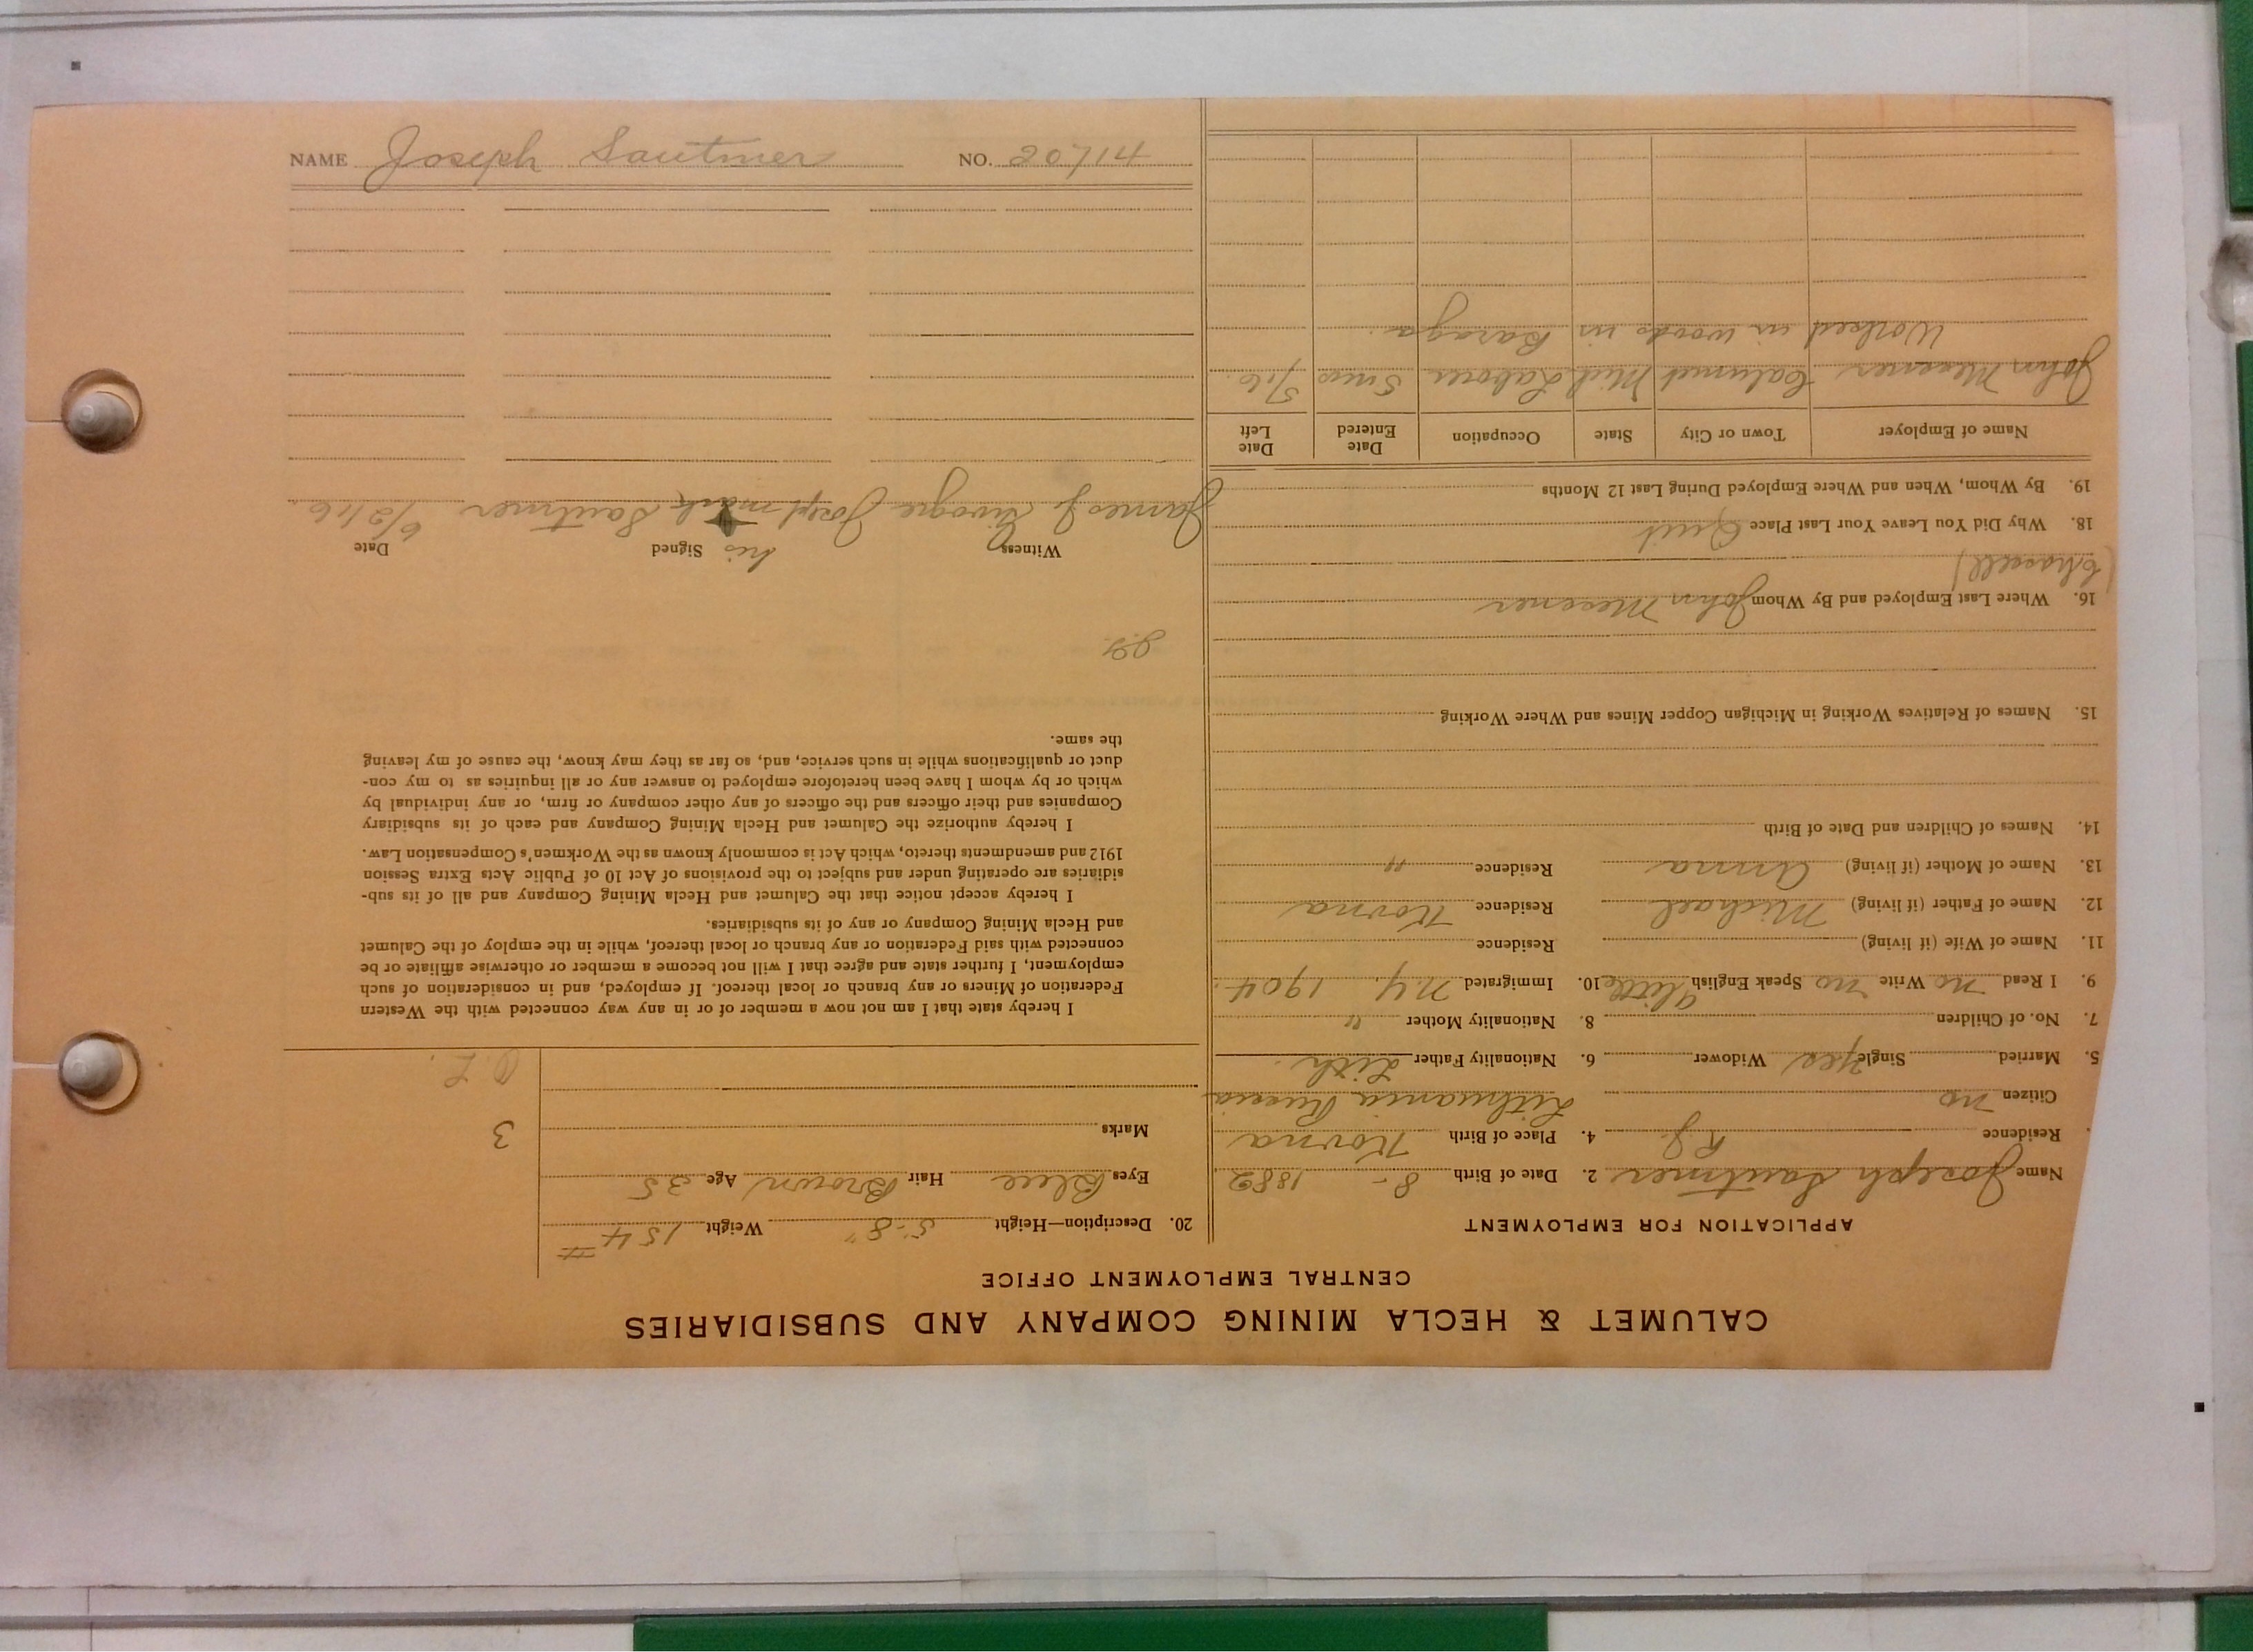 CALUMET & HECLA MINING COMPANY AND SUBSIDIARIES
CENTRAL EMPLOYMENT OFFICE
APPLICATION FOR EMPLOYMENT
Name Joseph Sautmer 2. Date of Birth 8 - 1882
Residence 4. Place of Birth Kovna
Citizen no Lithuania Russia
5. Married Single yes Widower 6. Nationality Father Lith.
7. No. of Children 8. Nationality Mother "
9. I Read no Write no Speak English little 10. Immigrated N.Y. 1904
11. Name of Wife (if living) Residence
12. Name of Father (if living) Michael Residence Kovna
13. Name of Mother (if living) Anna Residence "
14. Names of Children and Date of Birth
15. Names of Relatives Working in Michigan Copper Mines and Where Working
16. Where Last Employed and By Whom John Messner
(Chassell)
18. Why Did You Leave Your Last Place Quit
19. By Whom, When and Where Employed During Last 12 Months
Name of Employer Town or City State Occupation Date Entered Date Left
John Messner Calumet Mich Laborer 5 mos 5/16.
Worked in woods in Baraga.
20. Description—Height 5-8" Weight 154 #
Eyes Blue Hair Brown Age 35
Marks 3
I hereby state that I am not now a member of or in any way connected with the Western
Federation of Miners or any branch or local thereof. If employed, and in consideration of such
employment, I further state and agree that I will not become a member or otherwise affiliate or be
connected with said Federation or any branch or local thereof, while in the employ of the Calumet
and Hecla Mining Company or any of its subsidiaries.
I hereby accept notice that the Calumet and Hecla Mining Company and all of its sub-
sidiaries are operating under and subject to the provisions of Act 10 of Public Acts Extra Session
1912 and amendments thereto, which Act is commonly known as the Workmen's Compensation Law.
I hereby authorize the Calumet and Hecla Mining Company and each of its subsidiary
Companies and their officers and the officers of any other company or firm, or any individual by
which or by whom I have been heretofore employed to answer any or all inquiries as to my con-
duct or qualifications while in such service, and, so far as they may know, the cause of my leaving
the same.
Witness his Signed Date
James J. Joseph mark Sautmer 6/2/16.
NAME Joseph Sautmer NO. 20714